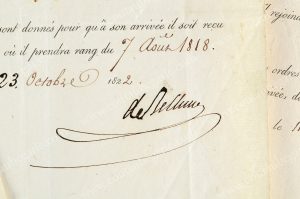 sont donnés pour qu'à son arrivée il soit reçu
où il prendra rang du 7 Août 1818.
23 Octobre 1822
de Bellune
rejoind
ordres
rivée, de